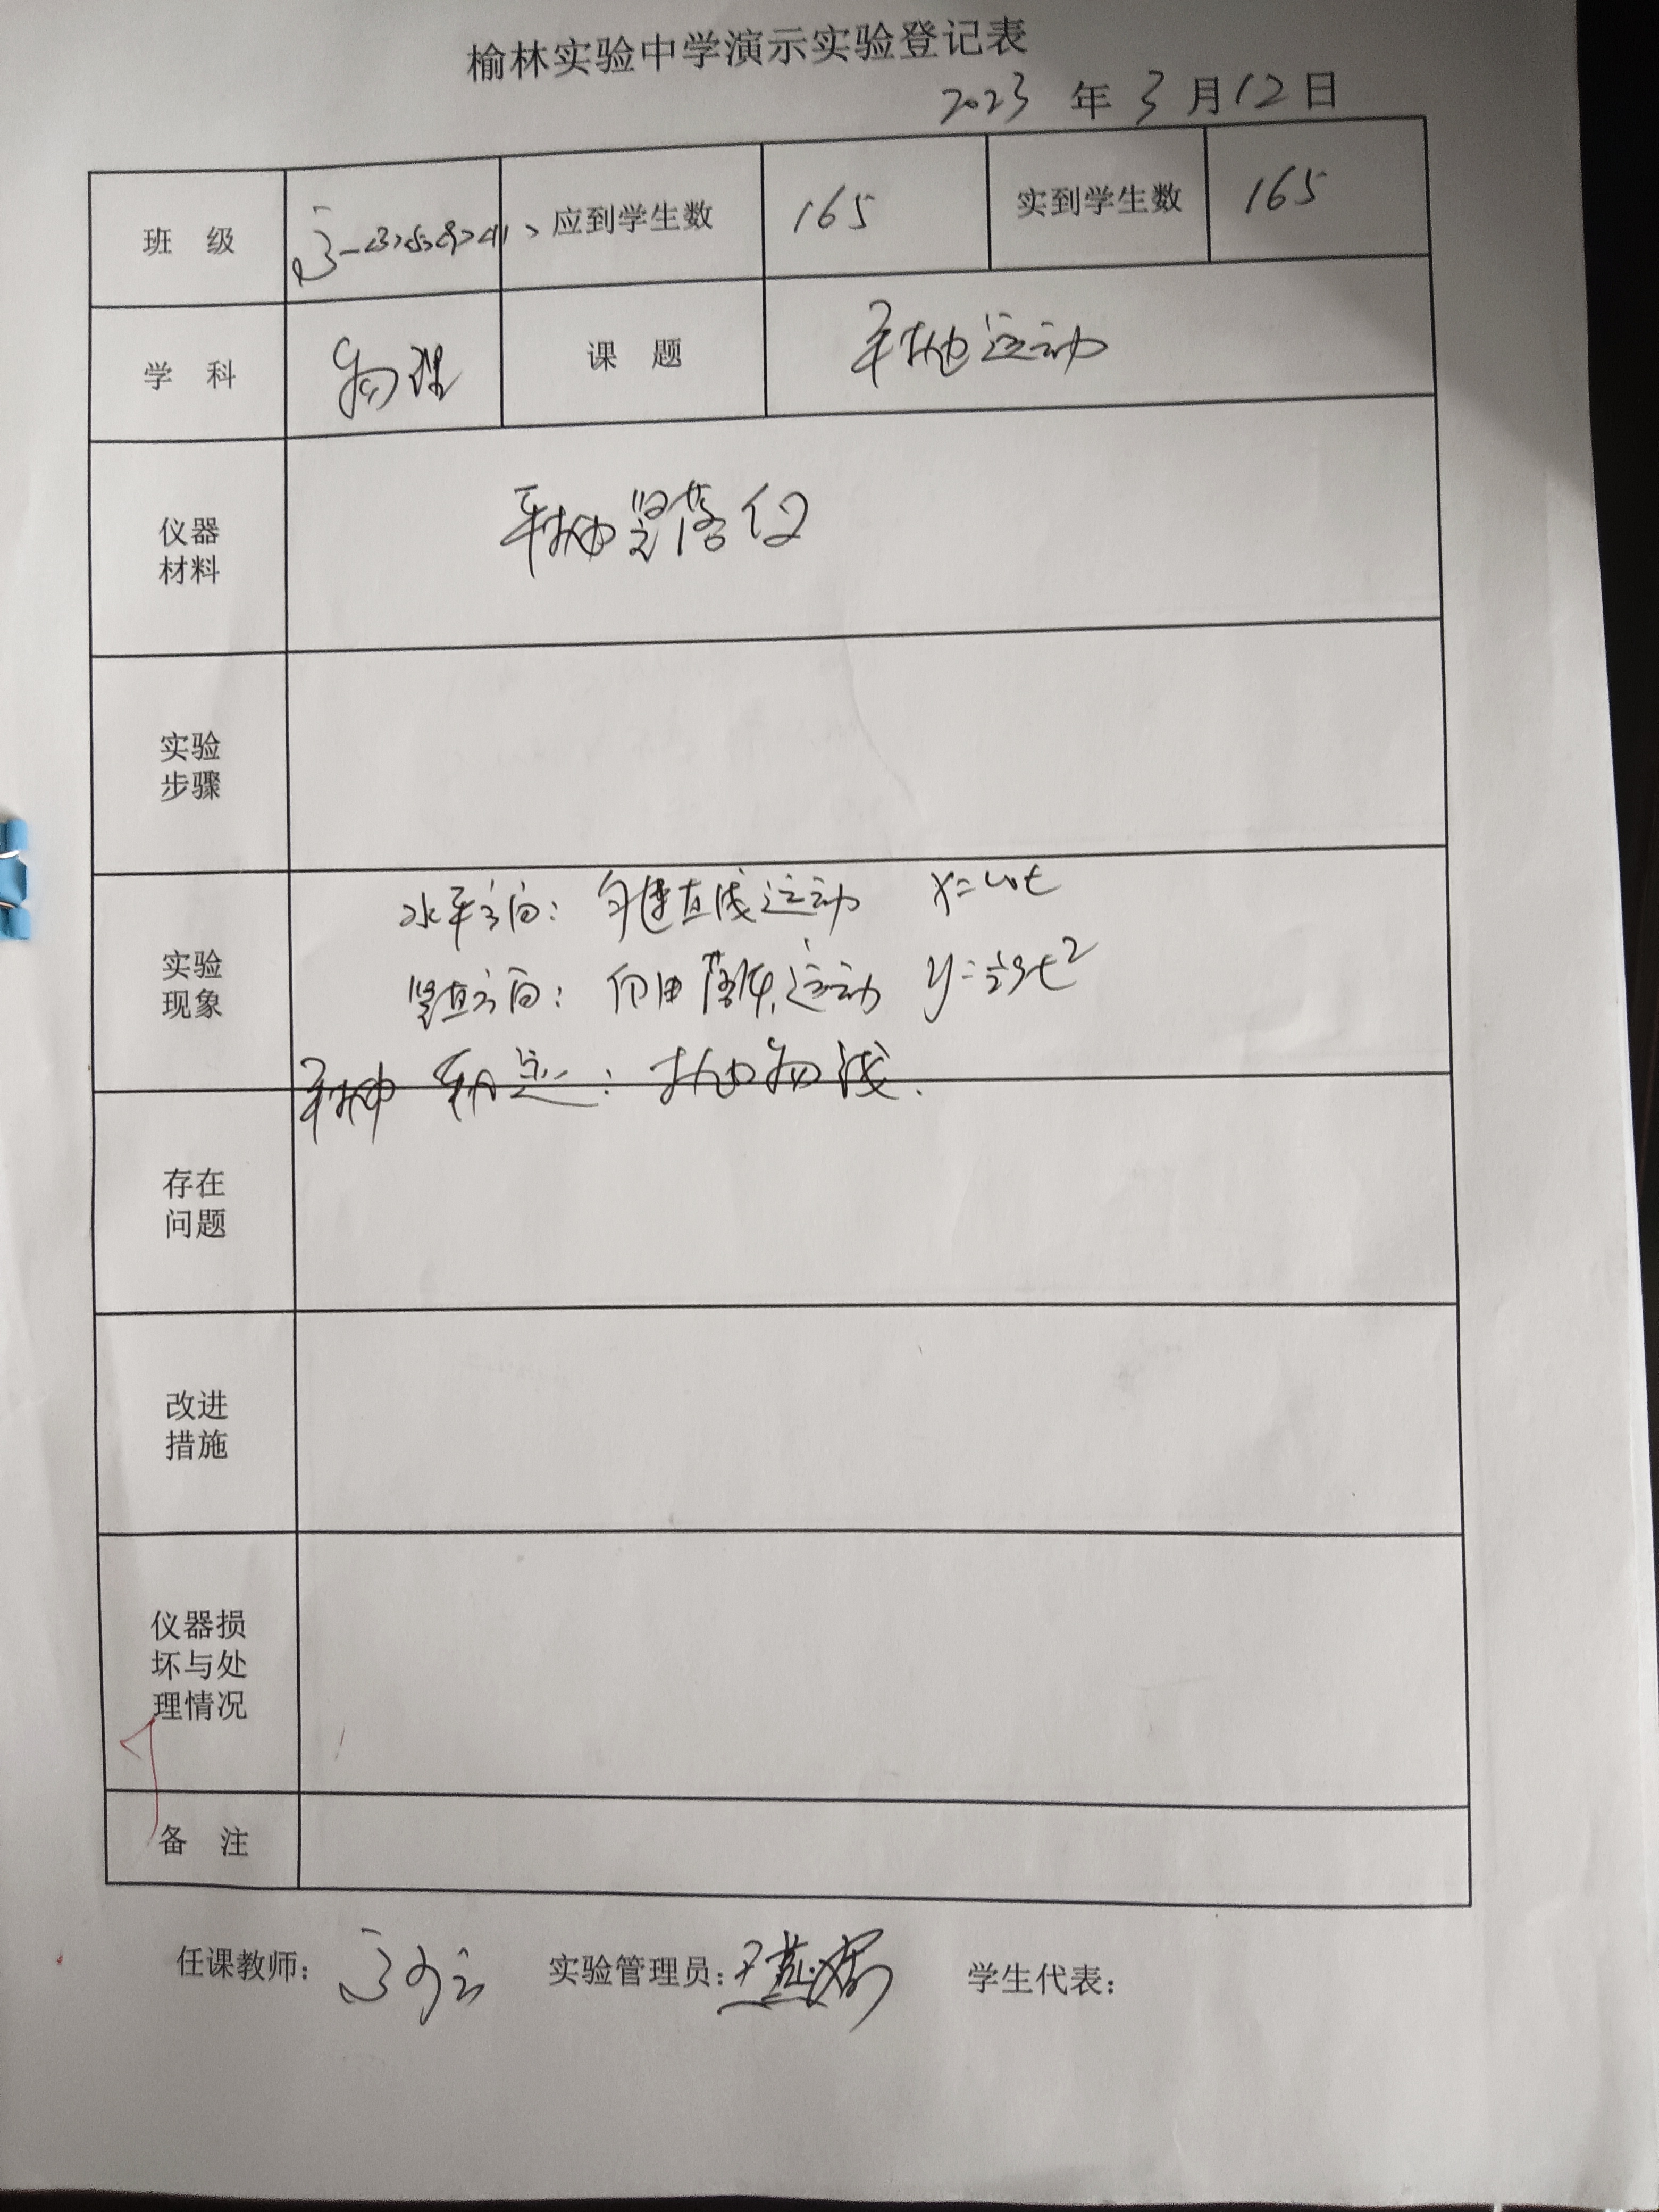 榆林实验中学演示实验登记表
2023 年 3 月 12 日
班 级 高一<3><5><9><11> 应到学生数 165 实到学生数 165
学 科 物理 课 题 平抛运动
仪器
材料
平抛竖落仪
实验
步骤
实验
现象
水平方向: 匀速直线运动 x=v₀t
竖直方向: 自由落体运动 y=½gt²
平抛 轨迹: 抛物线.
存在
问题
改进
措施
仪器损
坏与处
理情况
备 注
任课教师: 实验管理员: 学生代表: